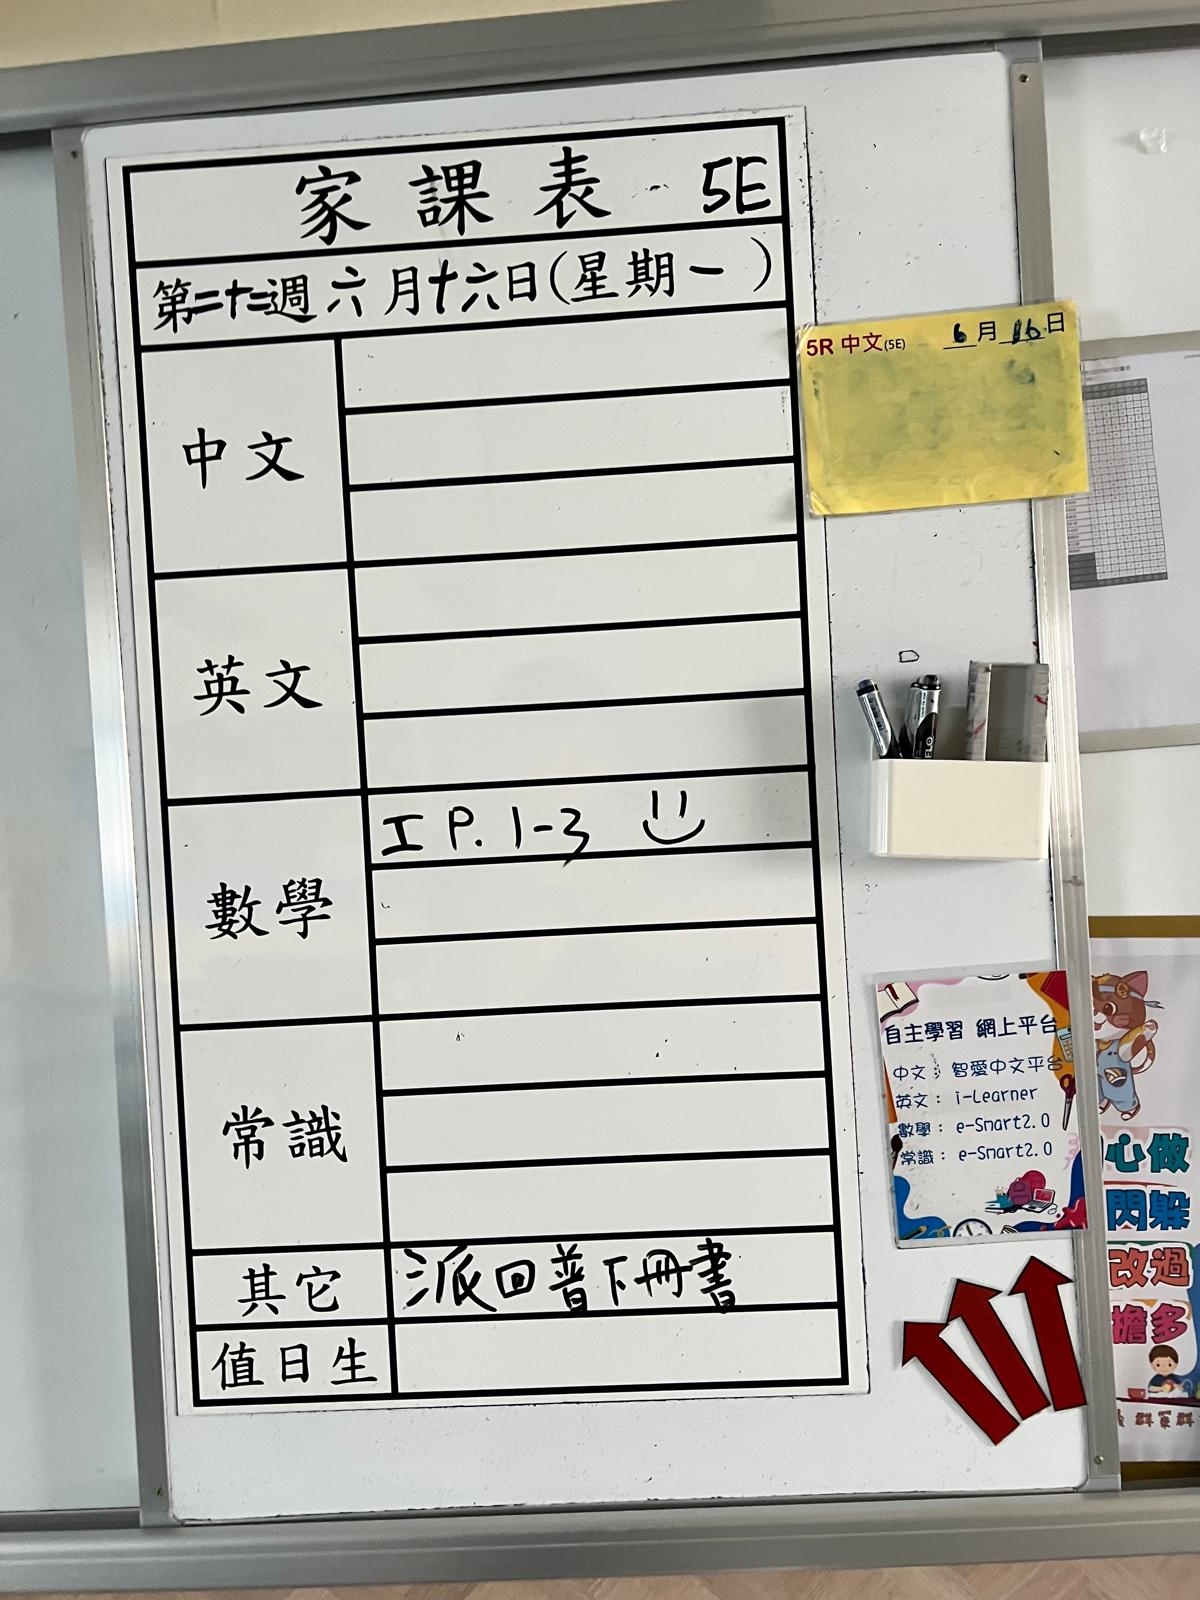 家課表 5E
第二十二週 六月十六日(星期一)
中文
英文
數學
工 P. 1-3
常識
其它
派回普下冊書
值日生
5R 中文(5E) 6月16日
自主學習 網上平台
中文: 智愛中文平台
英文: i-Learner
數學: e-Smart2.0
常識: e-Smart2.0
心做
閃躲
改過
擔多